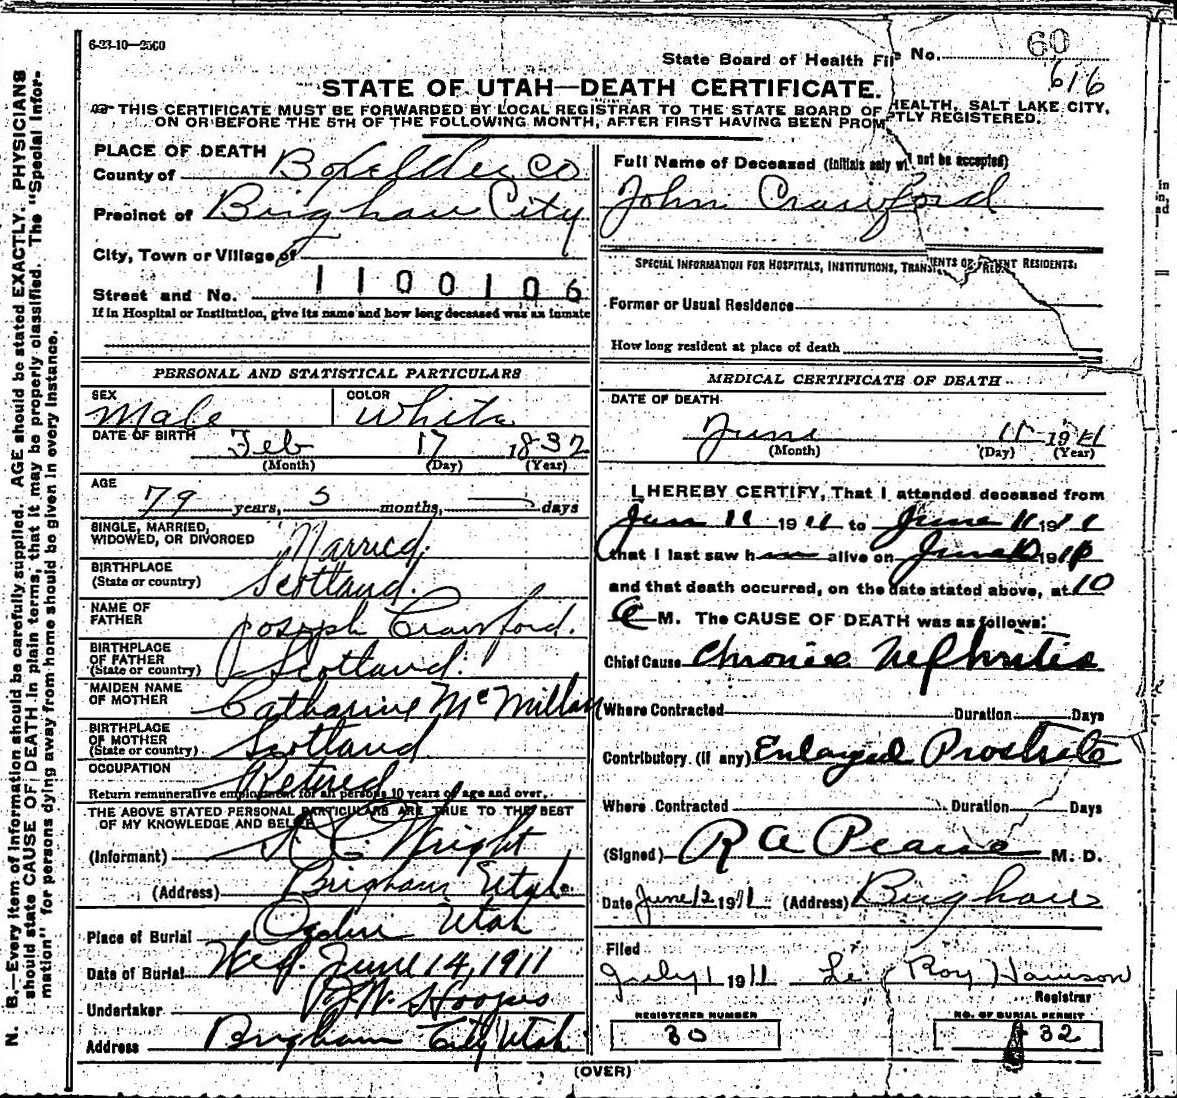 6-23-10—2500
State Board of Health File No. 60
616
STATE OF UTAH—DEATH CERTIFICATE.
THIS CERTIFICATE MUST BE FORWARDED BY LOCAL REGISTRAR TO THE STATE BOARD OF HEALTH, SALT LAKE CITY,
ON OR BEFORE THE 5TH OF THE FOLLOWING MONTH, AFTER FIRST HAVING BEEN PROMPTLY REGISTERED.
N. B.—Every item of information should be carefully supplied. AGE should be stated EXACTLY. PHYSICIANS
should state CAUSE OF DEATH in plain terms, that it may be properly classified. The "Special Infor-
mation" for persons dying away from home should be given in every instance.
PLACE OF DEATH
County of Boxelder Co
Precinct of Brigham City
City, Town or Village of
1100106
Street and No.
If in Hospital or Institution, give its name and how long deceased was an inmate
Full Name of Deceased (Initials only will not be accepted)
John Crawford
SPECIAL INFORMATION FOR HOSPITALS, INSTITUTIONS, TRANSIENTS OR RECENT RESIDENTS:
Former or Usual Residence
How long resident at place of death
PERSONAL AND STATISTICAL PARTICULARS
SEX Male
COLOR White
DATE OF BIRTH Feb 17 1832
(Month) (Day) (Year)
AGE 79 years, 5 months, days
SINGLE, MARRIED,
WIDOWED, OR DIVORCED Married.
BIRTHPLACE
(State or country) Scotland.
NAME OF
FATHER Joseph Crawford.
BIRTHPLACE
OF FATHER
(State or country) Scotland.
MAIDEN NAME
OF MOTHER Catharine McMillan
BIRTHPLACE
OF MOTHER
(State or country) Scotland
OCCUPATION Retired
Return remunerative employment for all persons 10 years of age and over.
THE ABOVE STATED PERSONAL PARTICULARS ARE TRUE TO THE BEST
OF MY KNOWLEDGE AND BELIEF
(Informant) A. C. Wright
(Address) Brigham Utah.
Place of Burial Ogden Utah
Date of Burial Wed. June 14, 1911
Undertaker Hoopes
Address Brigham City Utah
MEDICAL CERTIFICATE OF DEATH
DATE OF DEATH
June 11 1911
(Month) (Day) (Year)
I HEREBY CERTIFY, That I attended deceased from
Jun 11 1911 to June 11 1911
that I last saw h alive on June 10 191
and that death occurred, on the date stated above, at 10
M. The CAUSE OF DEATH was as follows:
Chief Cause Chronic Nephritis
Where Contracted Duration Days
Contributory (if any) Enlarged Prostrate
Where Contracted Duration Days
(Signed) R A Pearse M. D.
Date June 12 1911 (Address) Brigham
Filed
July 1 1911 Le Roy Harrison
Registrar
REGISTERED NUMBER
30
NO. OF BURIAL PERMIT
32
(OVER)